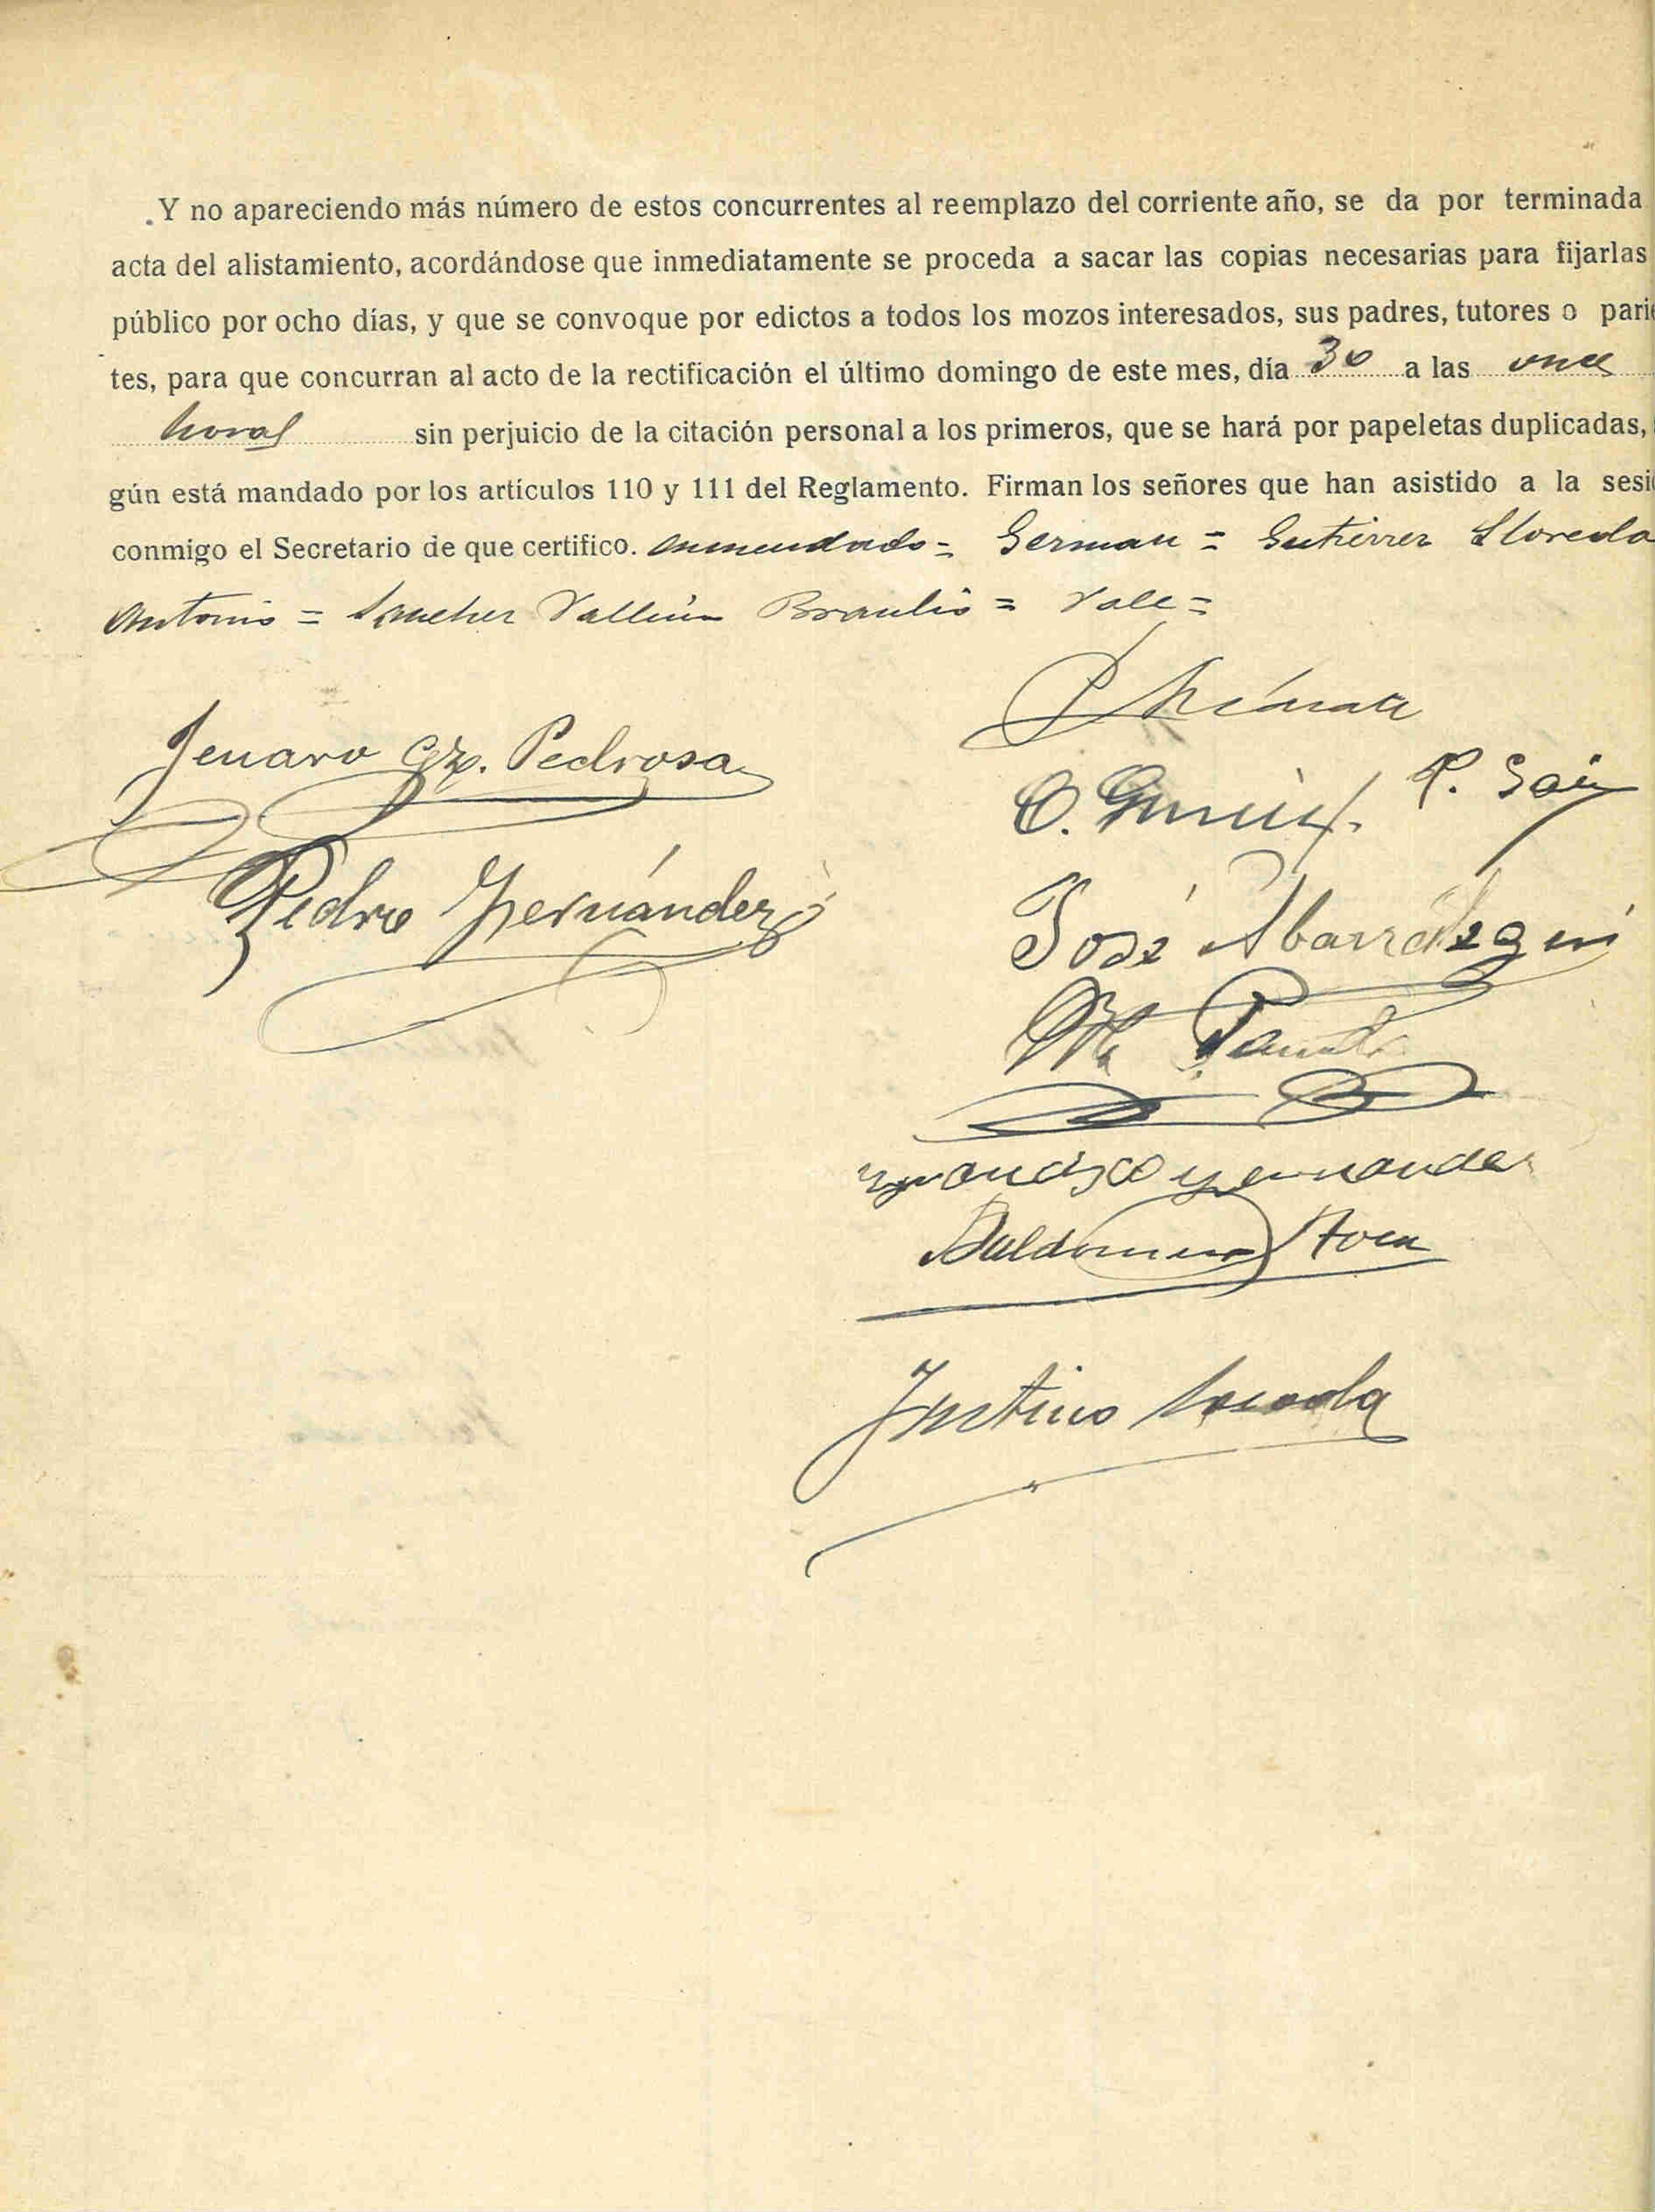 Y no apareciendo más número de estos concurrentes al reemplazo del corriente año, se da por terminada
acta del alistamiento, acordándose que inmediatamente se proceda a sacar las copias necesarias para fijarlas
público por ocho días, y que se convoque por edictos a todos los mozos interesados, sus padres, tutores o parie
tes, para que concurran al acto de la rectificación el último domingo de este mes, día 30 a las once
horas sin perjuicio de la citación personal a los primeros, que se hará por papeletas duplicadas,
gún está mandado por los artículos 110 y 111 del Reglamento. Firman los señores que han asistido a la sesió
conmigo el Secretario de que certifico. enmendado = German = Gutierrez Lloreda
Antonio = Sanchez Vallin Braulio = Vale =
Jenaro Gz. Pedrosa
Pedro Hernández
José
Francisco Hernandez
Baldomero
Justino